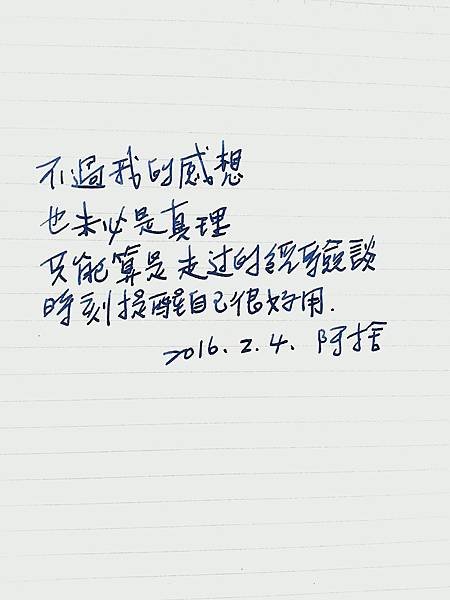 不過我的感想
也未必是真理
只能算是走过的經驗談
時刻提醒自己很好用.
2016.2.4. 阿捨